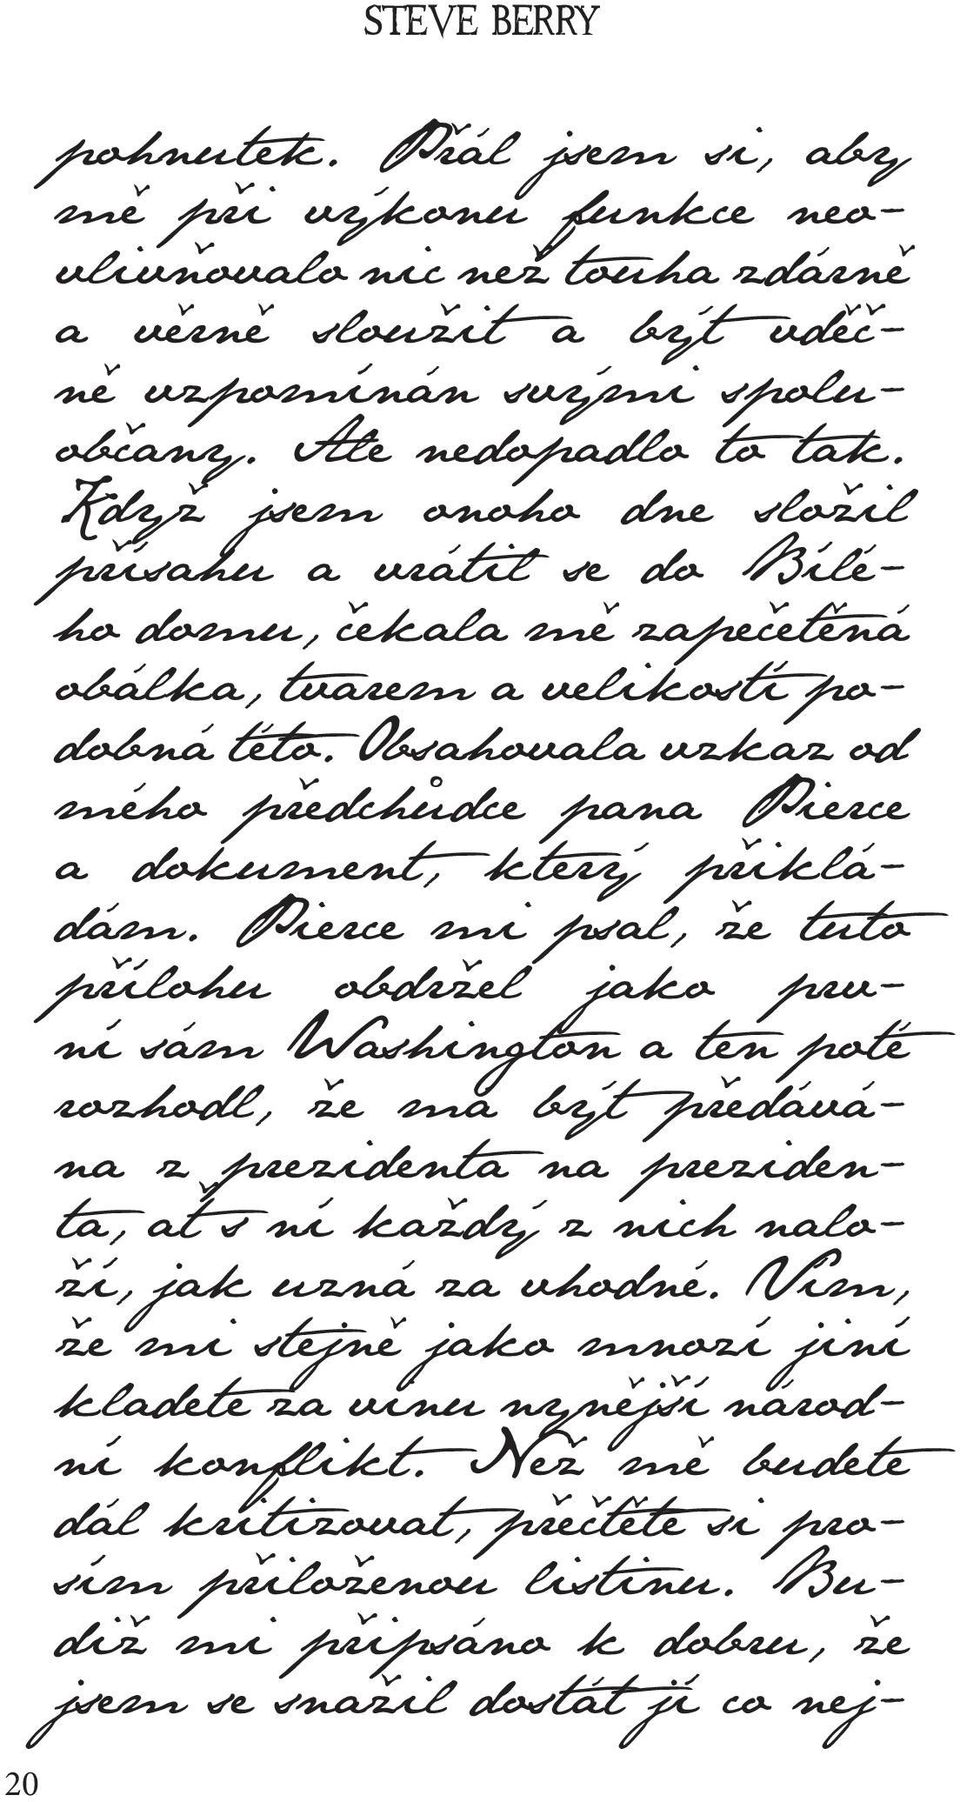 STEVE BERRY
pohnutek. Přál jsem si, aby
mě při výkonu funkce neo-
vlivňovalo nic než touha zdárně
a věrně sloužit a být vděč-
ně vzpomínán svými spolu-
občany. Ale nedopadlo to tak.
Když jsem onoho dne složil
přísahu a vrátil se do Bílé-
ho domu, čekala mě zapečetěná
obálka, tvarem a velikostí po-
dobná této. Obsahovala vzkaz od
mého předchůdce pana Pierce
a dokument, který přiklá-
dám. Pierce mi psal, že tuto
přílohu obdržel jako prv-
ní sám Washington a ten poté
rozhodl, že má být předává-
na z prezidenta na preziden-
ta, ať s ní každý z nich nalo-
ží, jak uzná za vhodné. Vím,
že mi stejně jako mnozí jiní
kladete za vinu nynější národ-
ní konflikt. Než mě budete
dál kritizovat, přečtěte si pro-
sím přiloženou listinu. Bu-
diž mi připsáno k dobru, že
jsem se snažil dostát jí co nej-
20